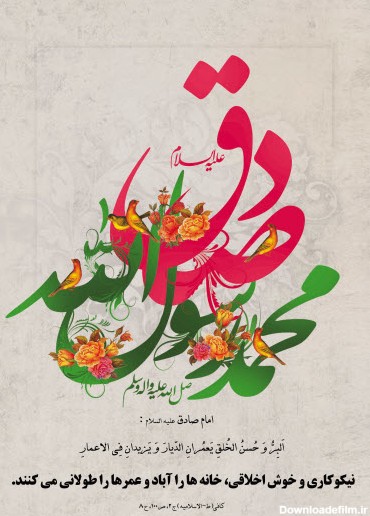 صادق
علیه السلام
محمد رسول الله
صلی الله علیه و آله وسلم
امام صادق علیه السلام :
اَلبِرُّ وَ حُسنُ الخُلقِ یَعمُرانِ الدِّیارَ وَ یَزیدانِ فِی الاعمارِ
نیکوکاری و خوش اخلاقی، خانه ها را آباد و عمرها را طولانی می کنند.
کافی(ط-الاسلامیه) ج۲، ص۱۰۰، ح۸
Downloadefilm.ir